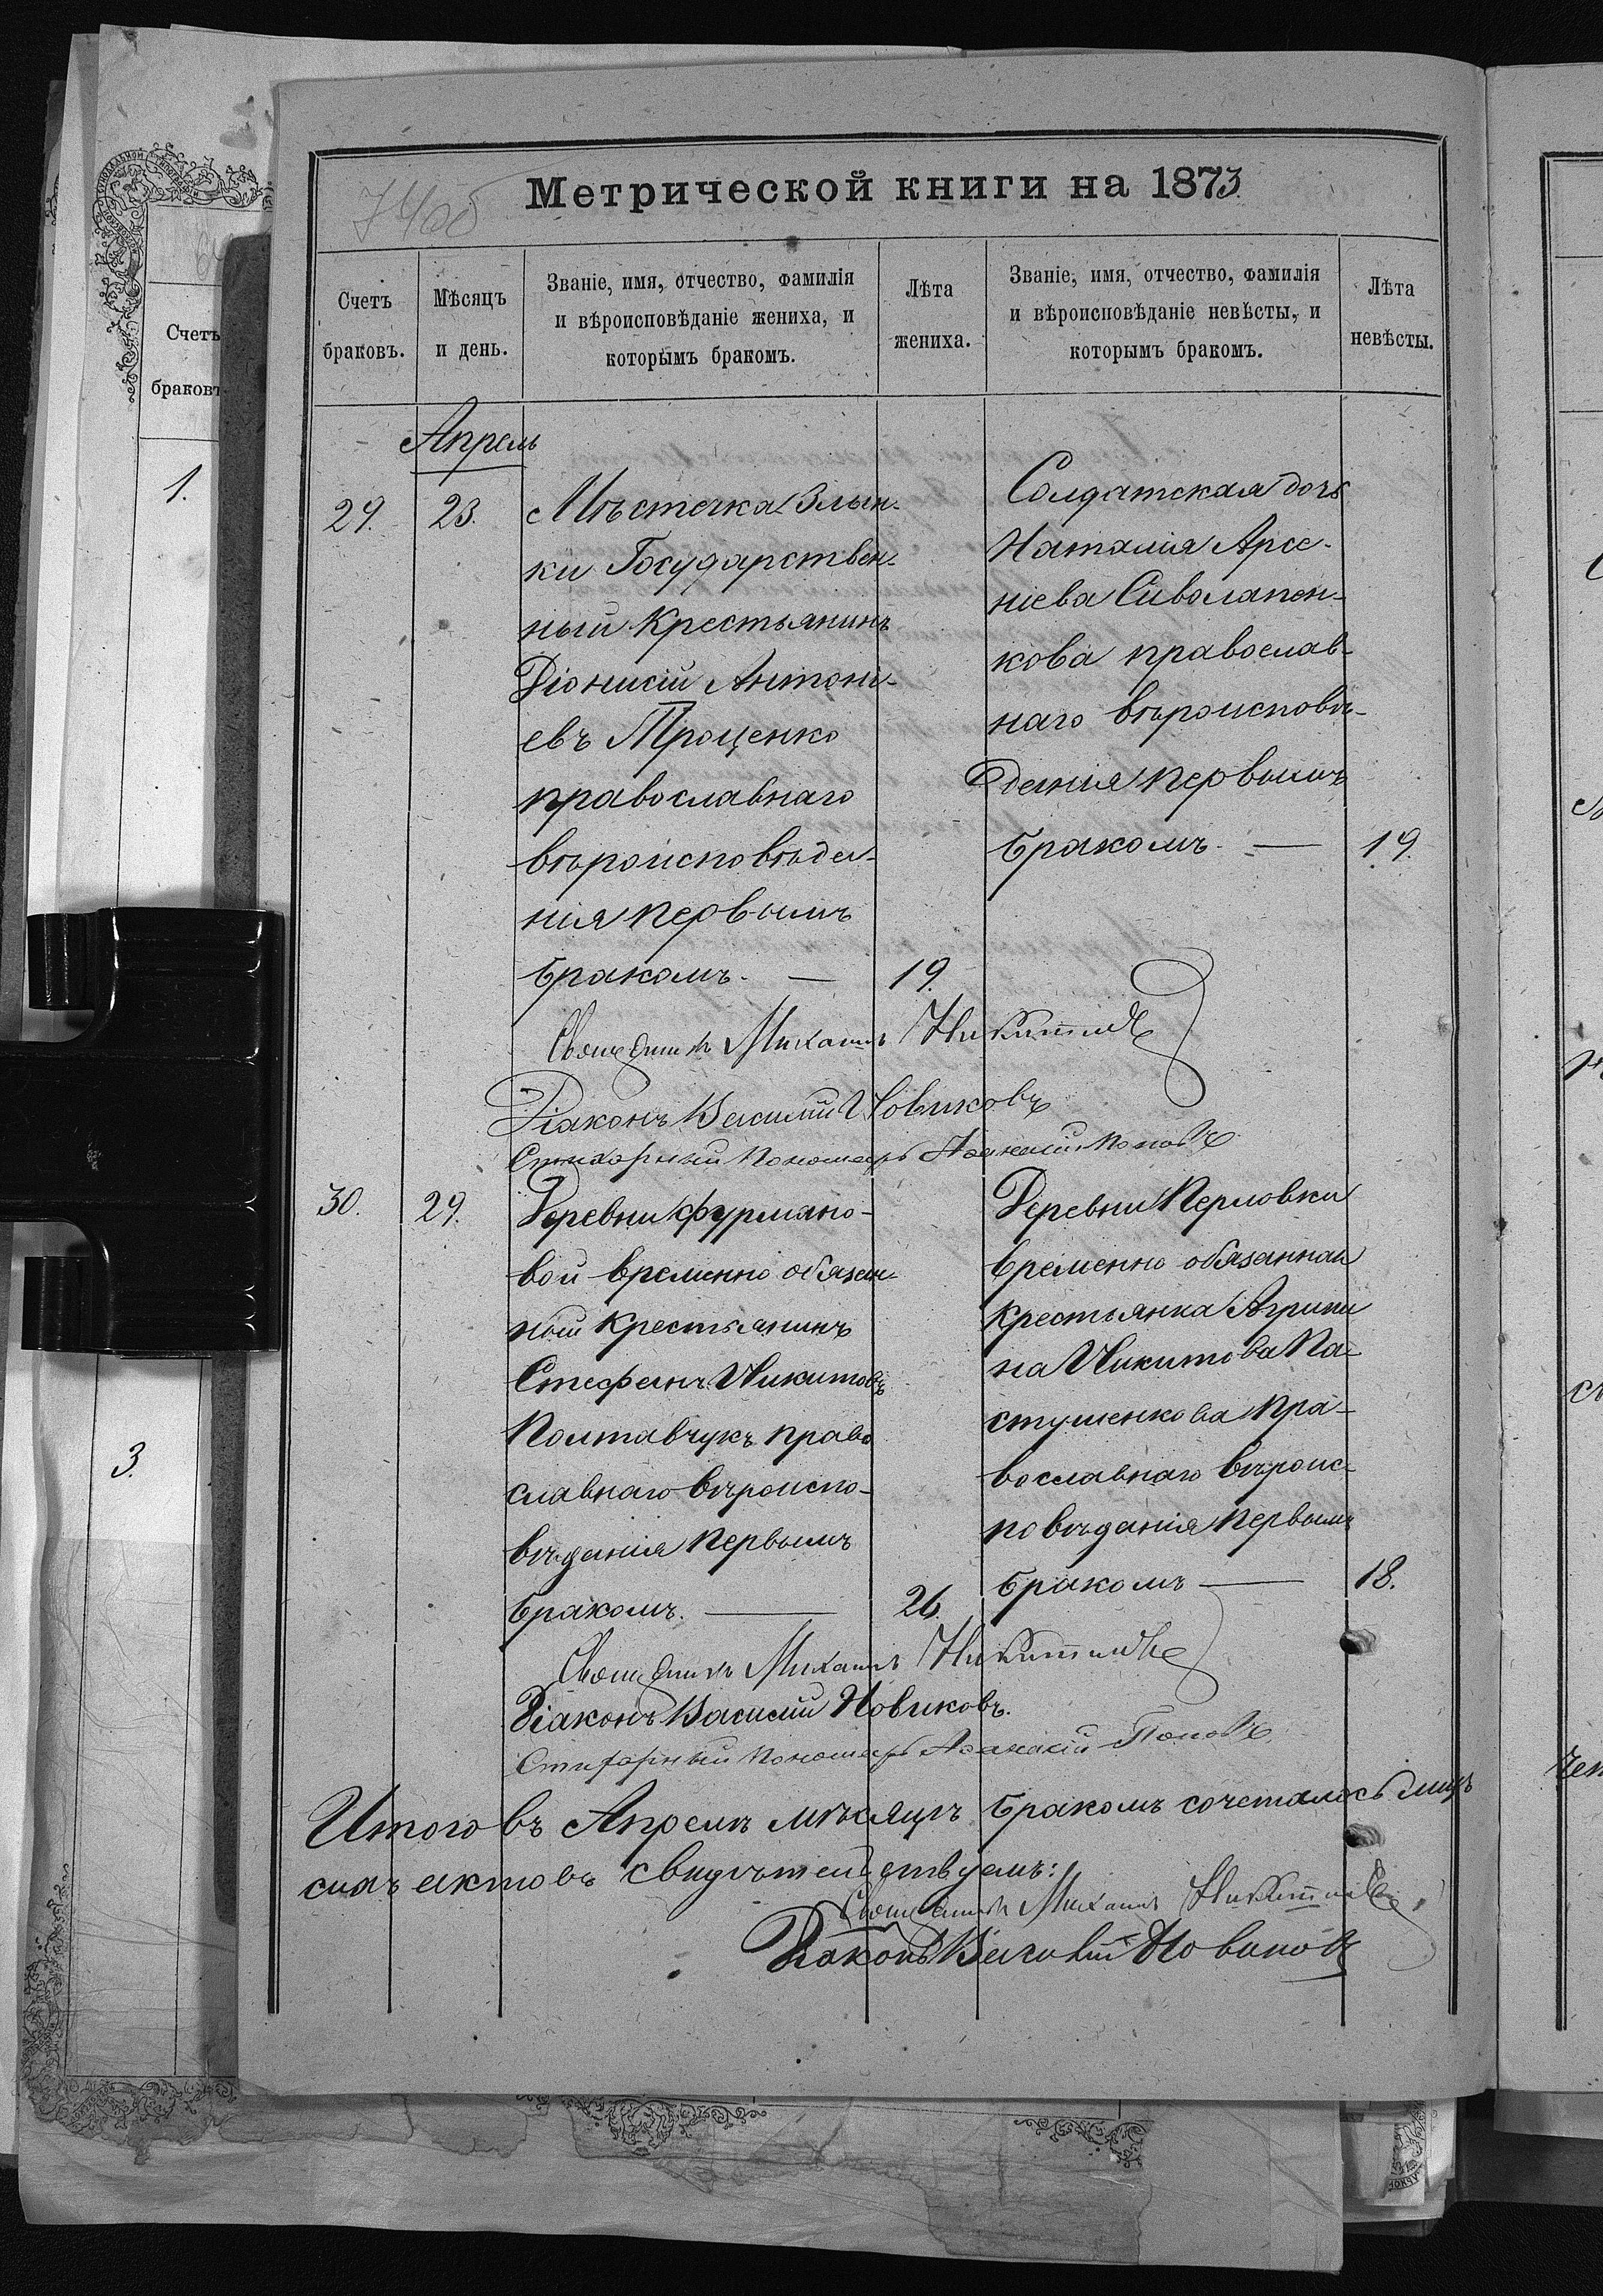 Метрической книги на 1873
Счетъ браковъ.
Мѣсяцъ и день.
Званіе, имя, отчество, фамилія
и вѣроисповѣданіе жениха, и
которымъ бракомъ.
Лѣта жениха.
Званіе, имя, отчество, фамилія
и вѣроисповѣданіе невѣсты, и
которымъ бракомъ.
Лѣта невѣсты.
Апрель
29. 23.
Мѣстечка Злын-
ки Государствен-
ный крестьянинъ
Діонисій Антоні-
евъ Проценко
православнаго
вѣроисповѣда-
нія первымъ
бракомъ. — 19.
Солдатская дочь
Наталія Арсе-
ніева Сиволапен-
кова православ-
наго вѣроисповѣ-
данія первымъ
бракомъ. — 19.
Священникъ Михаилъ Никитинъ
Діаконъ Василій Новиковъ
Стихарный Пономарь Аѳанасій Поповъ
30. 29.
Деревни Фурмано-
вой временно обязан-
ный крестьянинъ
Стефанъ Никитовъ
Полтавчукъ право
славнаго вѣроиспо-
вѣданія первымъ
бракомъ. — 26.
Деревни Перловки
временно обязанная
крестьянка Агрипи
на Никитова Па-
стушенкова пра-
вославнаго вѣроис-
повѣданія первымъ
бракомъ — 18.
Священникъ Михаилъ Никитинъ
Діаконъ Василій Новиковъ.
Стихарный Пономарь Аѳанасій Поповъ
Итого въ Апрелѣ мѣсяцѣ бракомъ сочеталось
актовъ свидѣтельствуемъ:
Священникъ Михаилъ Никитинъ
Діаконъ Василій Новиковъ
Счетъ
браковъ
1.
3.